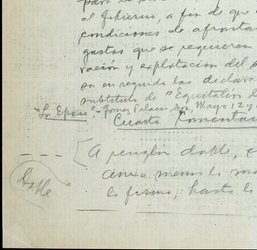 para la
al Gobierno, a fin de que
condiciones de afrontar
gastos que se requieren
vación y explotación del
su en seguida las declara
subtítulo de "Equitable
"La Epoca", Gomez Palacio, Dgo., Mayo 12 y
Cuarto Comentario
A renglón doble,
Doble
menos la
la firma, hasta